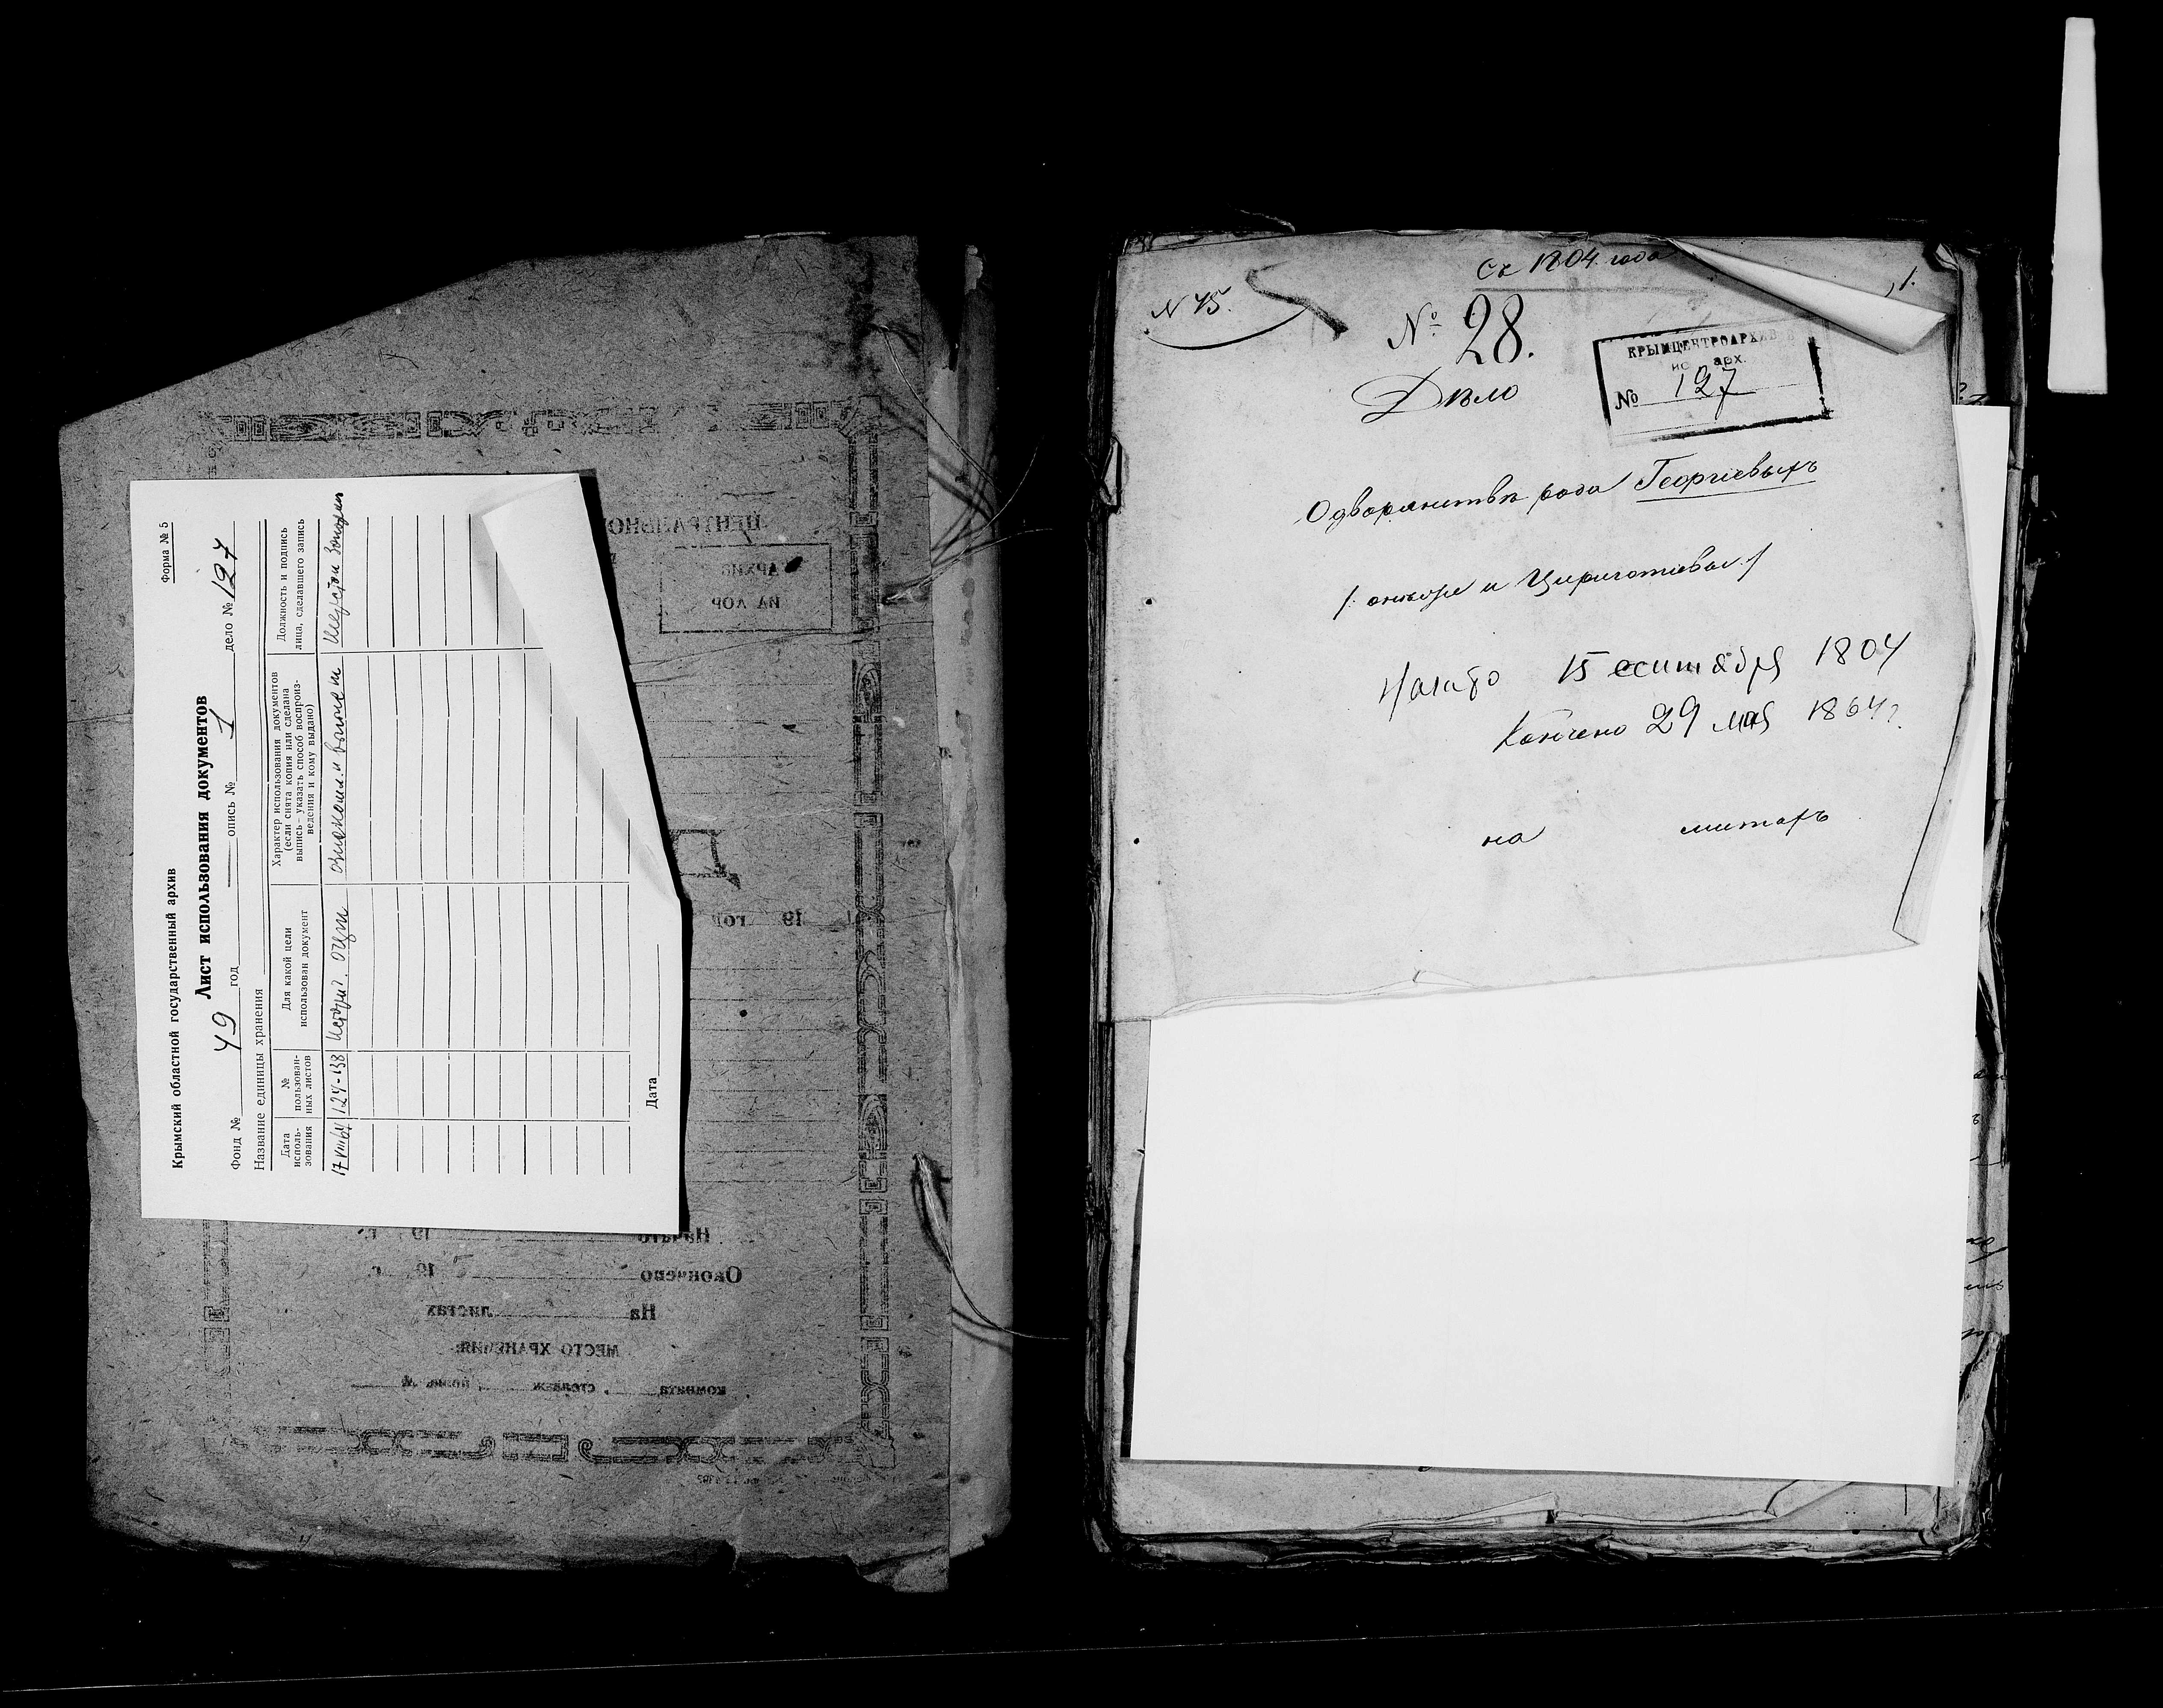 Форма № 5
Крымский областной государственный архив
Лист использования документов
Фонд № 49 год опись № 1 дело № 127
Название единицы хранения
Дата исполь-
зования
№
пользован-
ных листов
Для какой цели
использован документ
Характер использования документов
(если снята копия или сделана
выпись – указать способ воспроиз-
ведения и кому выдано)
Должность и подпись
лица, сделавшего запись
17 VIII 64 124-138
Дата
ЦЕНТРАЛЬНО
19 год
Начато 19 г.
Окончено 19 г.
На листах
МЕСТО ХРАНЕНИЯ:
комната , стелаж , полка №
Съ 1804 года
1.
N 45.
№ 28.
Дѣло
КРЫМЦЕНТРОАРХИВ
ис арх.
№ 127
О дворянствѣ рода Георгіевыхъ
/: онъ же и Цириготіевы :/
Начато 15 сентября 1804
Кончено 29 мая 1864 г.
на листахъ